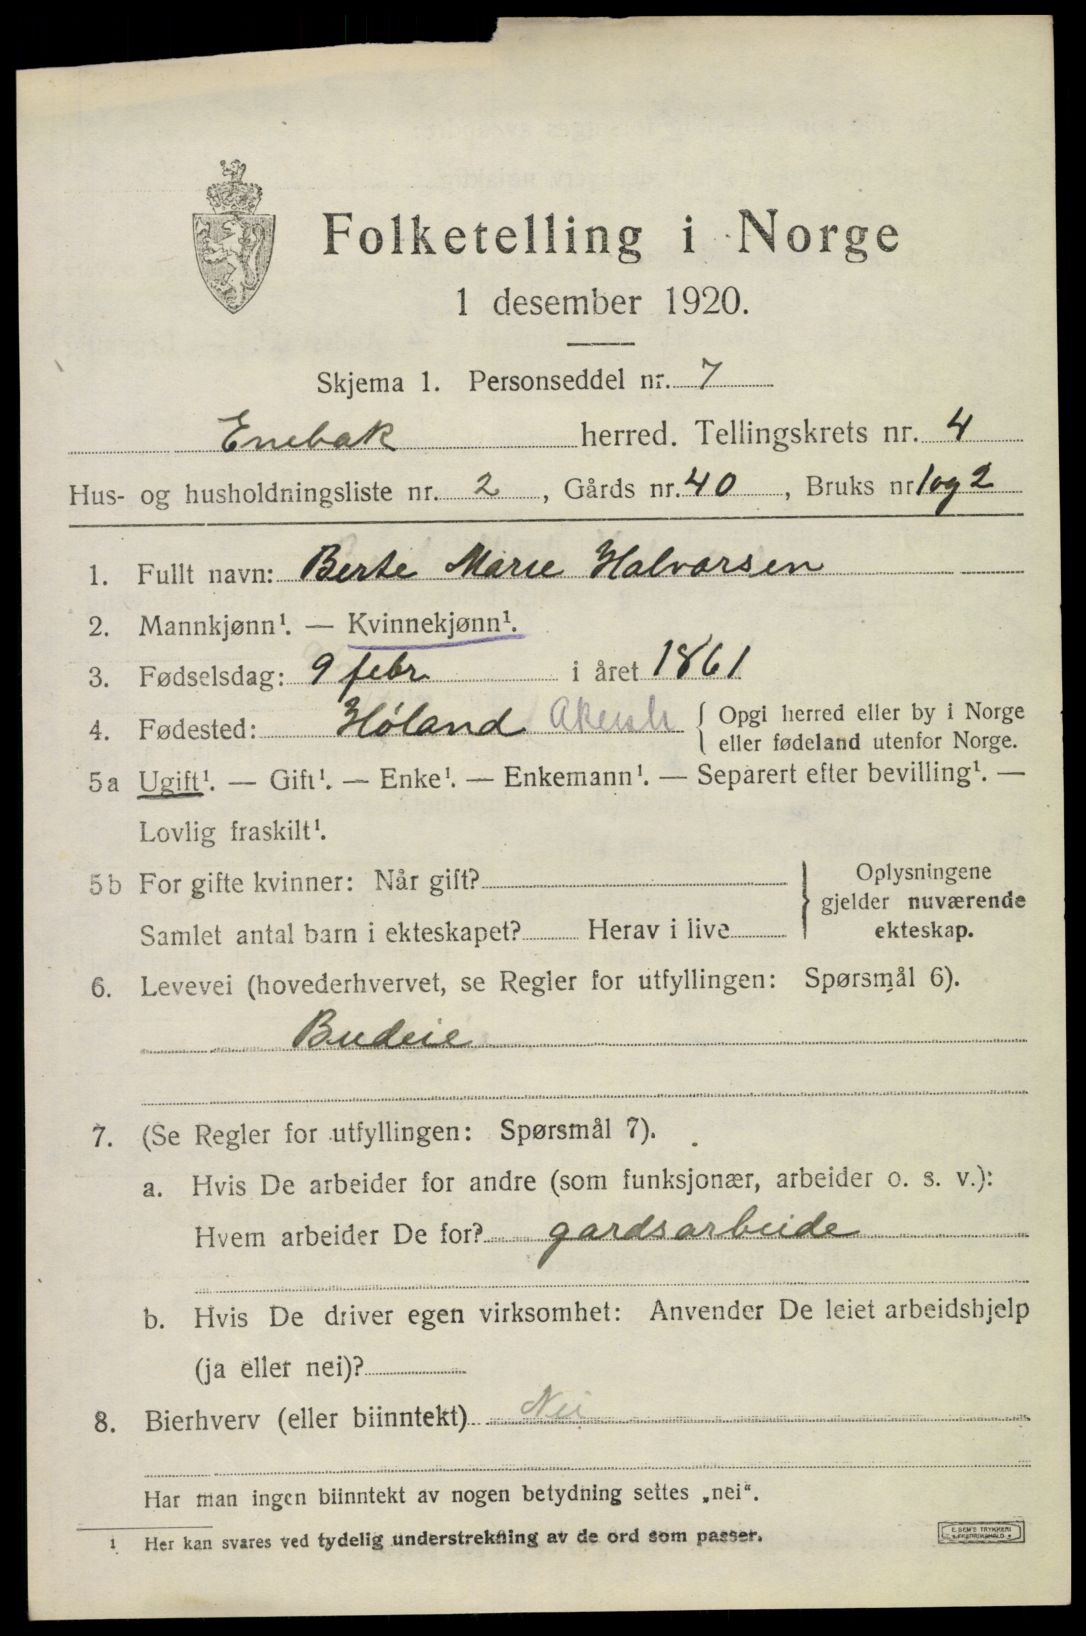 Folketelling i Norge
1 desember 1920.
Skjema 1. Personseddel nr. 7
Enebak herred. Tellingskrets nr. 4
Hus- og husholdningsliste nr. 2, Gårds nr. 40, Bruks nr 1 og 2
1. Fullt navn: Berte Marie Halvorsen
2. Mannkjønn¹. — Kvinnekjønn¹.
3. Fødselsdag: 9 febr. i året 1861
4. Fødested: Høland Akersh { Opgi herred eller by i Norge
eller fødeland utenfor Norge.
5a Ugift¹. — Gift¹. — Enke¹. — Enkemann¹. — Separert efter bevilling¹. —
Lovlig fraskilt¹.
5b For gifte kvinner: Når gift? } Oplysningene
gjelder nuværende
Samlet antal barn i ekteskapet? Herav i live ekteskap.
6. Levevei (hovederhvervet, se Regler for utfyllingen: Spørsmål 6).
Budeie
7. (Se Regler for utfyllingen: Spørsmål 7).
a. Hvis De arbeider for andre (som funksjonær, arbeider o. s. v.):
Hvem arbeider De for? gardsarbeide
b. Hvis De driver egen virksomhet: Anvender De leiet arbeidshjelp
(ja eller nei)?
8. Bierhverv (eller biinntekt) Nei
Har man ingen biinntekt av nogen betydning settes „nei“.
¹ Her kan svares ved tydelig understrekning av de ord som passer.
E. SEM'S TRYKKERI
FREDRIKSHALD